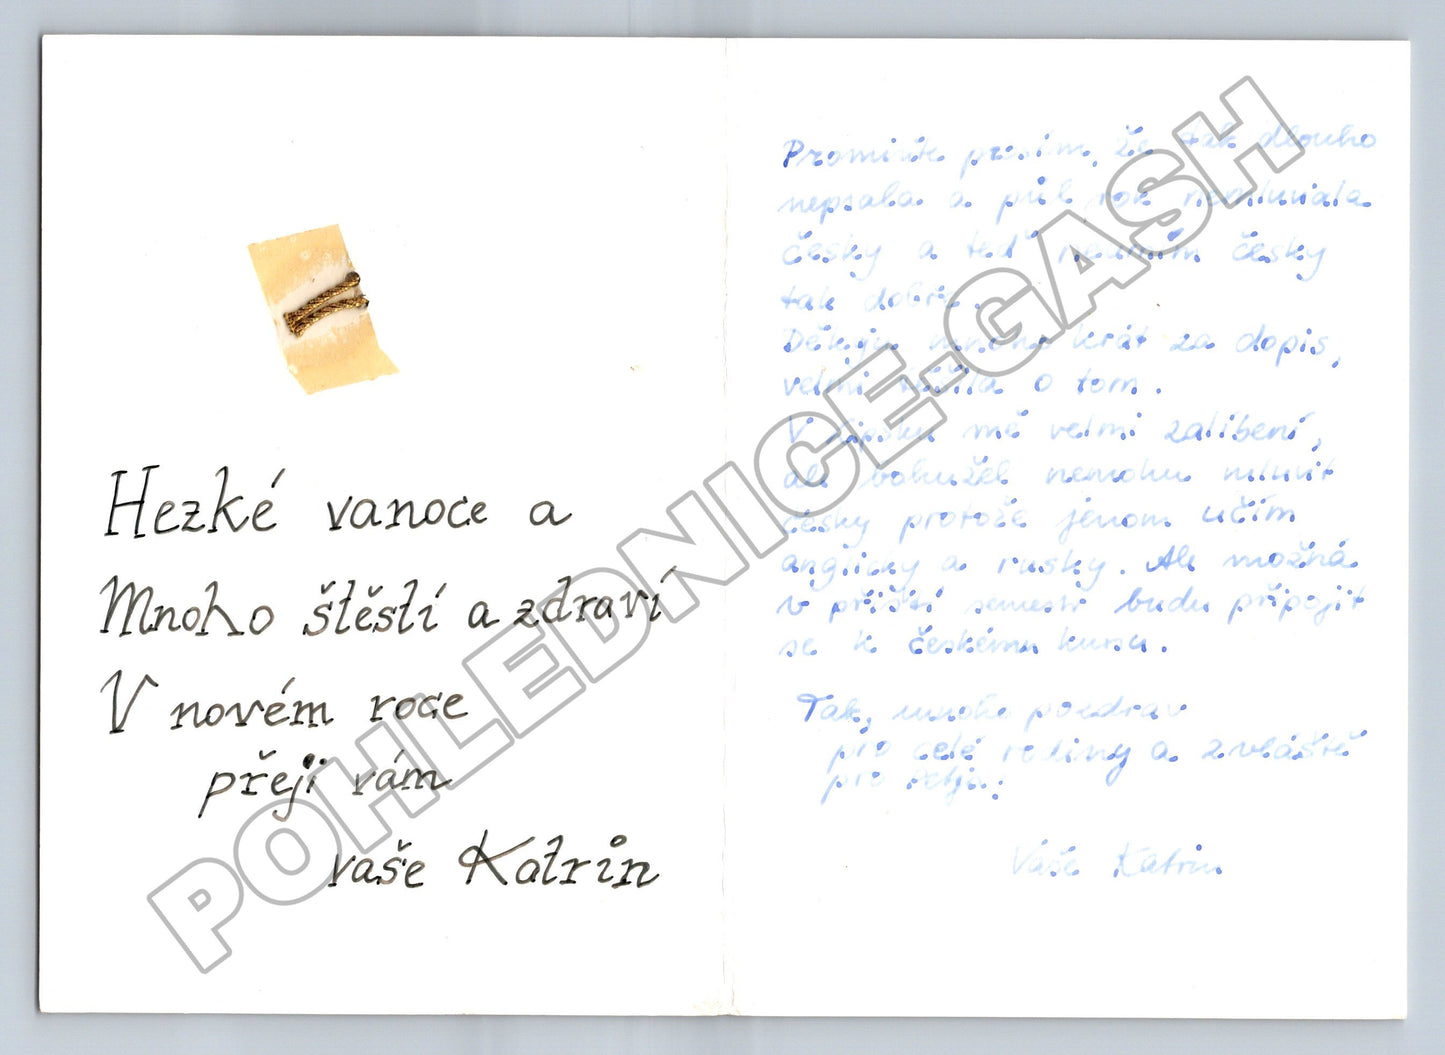 Hezké vanoce a
Mnoho štěstí a zdraví
V novém roce
přeji vám
vaše Katrin
Promiňte prosím, že tak dlouho
nepsala a půl rok nemluvila
česky a teď neumím česky
tak dobře.
Děkuju mnoho krát za dopis,
velmi o tom.
V Lipsku mě velmi zalíbení,
ale bohužel nemohu mluvit
česky protože jenom učím
anglicky a rusky. Ale možná
v příští semestr budu připojit
se k českému kursu.
Tak, mnoho pozdrav
pro celé rodiny a zvláště
pro
Vaše Katrin
POHLEDNICE-GASH